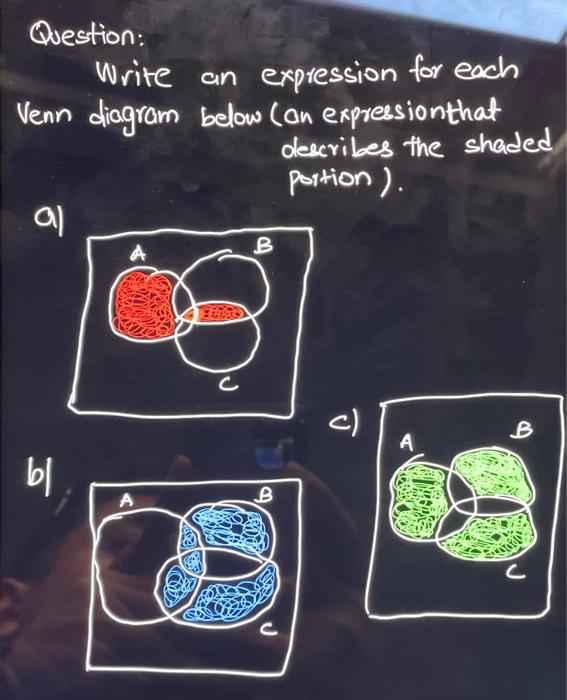 Question:
Write an expression for each
Venn diagram below (an expression that
describes the shaded
portion).
a)
A
B
C
c)
A
B
C
b)
A
B
C